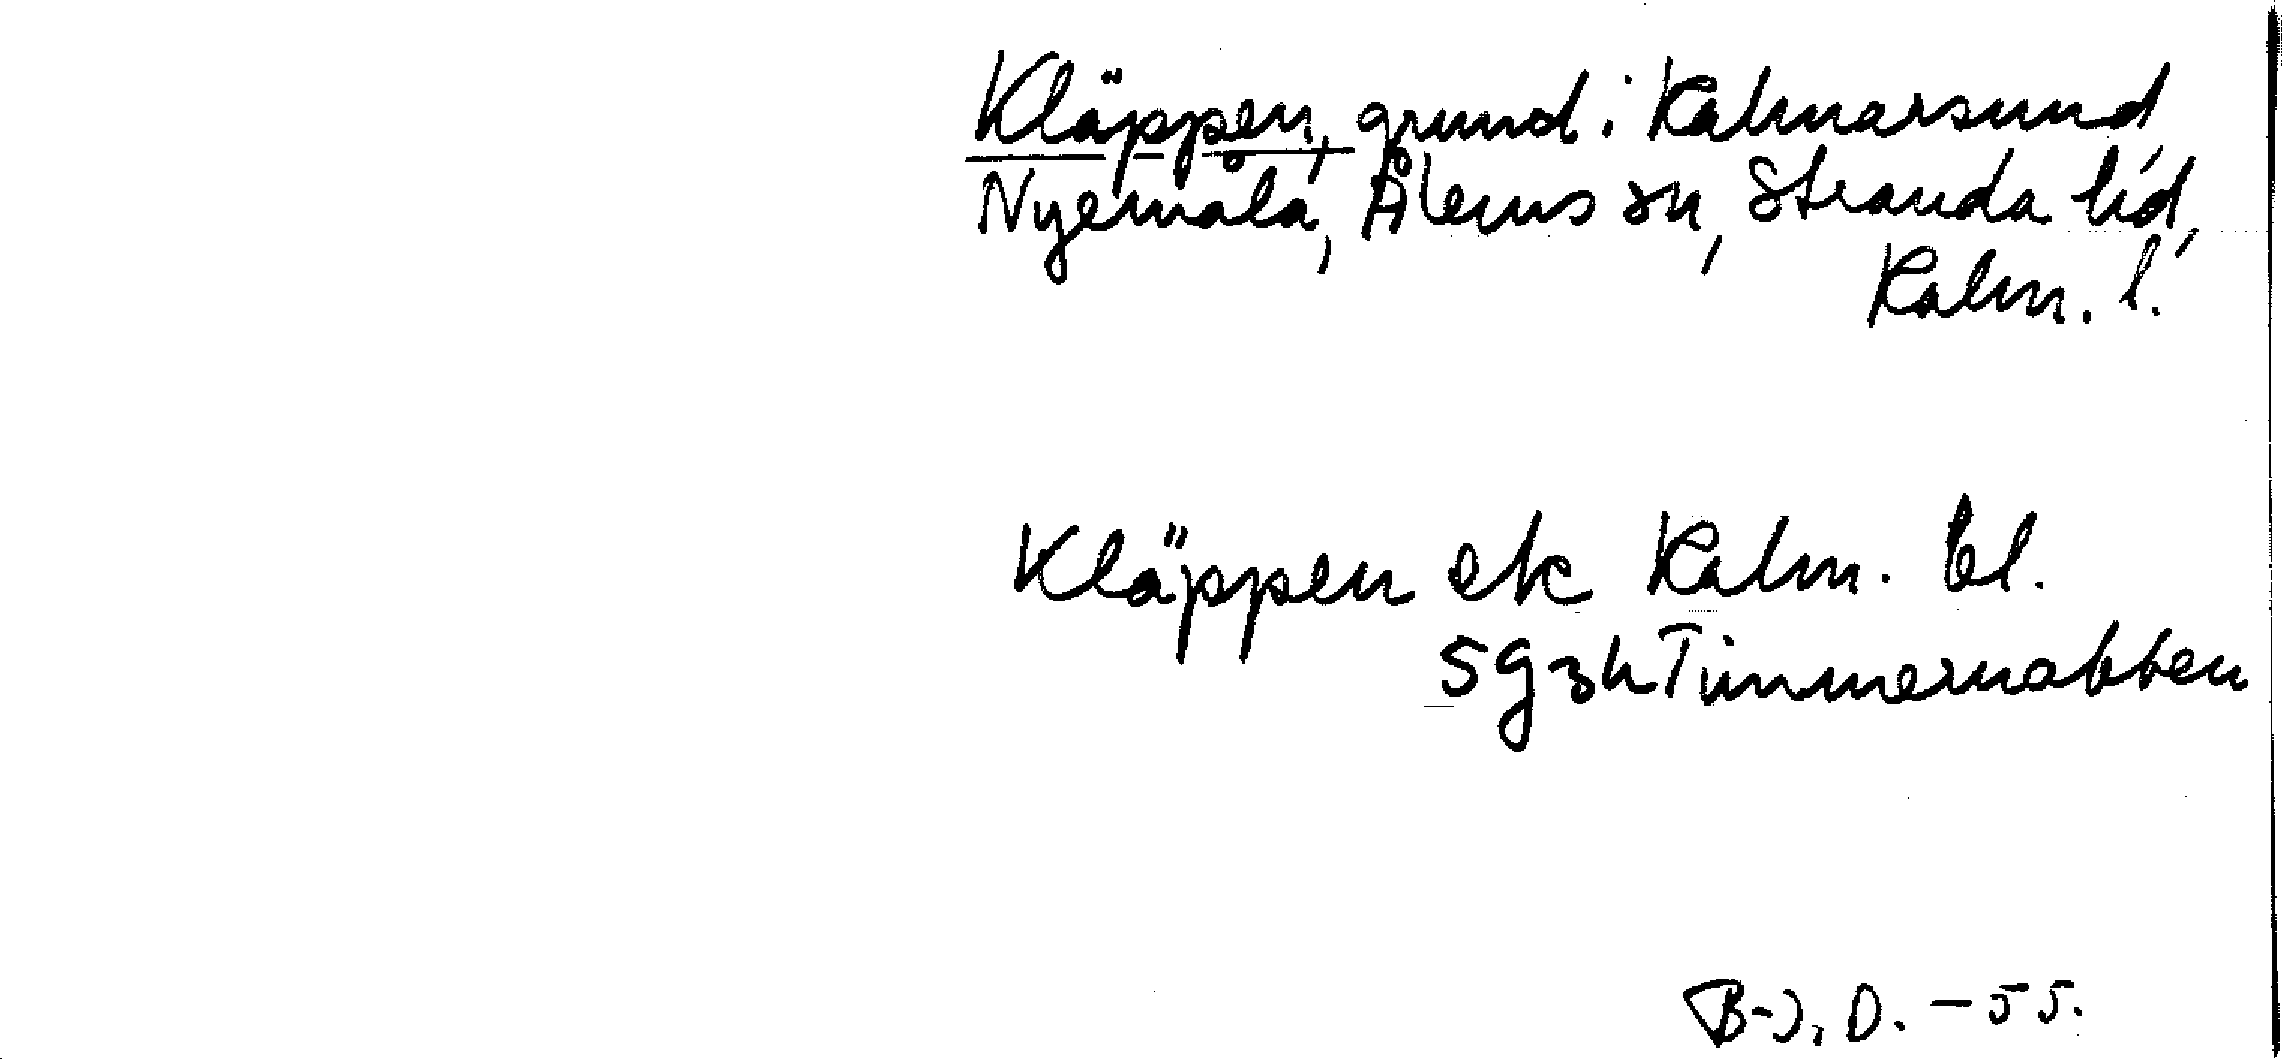 Kläppen, grund i Kalmarsund,
Nyemåla, Ålems sn, Stranda hd,
Kalm. l.
Kläppen ek Kalm. bl.
5 g 3 h Timmernabben
B-J, D. - 55.